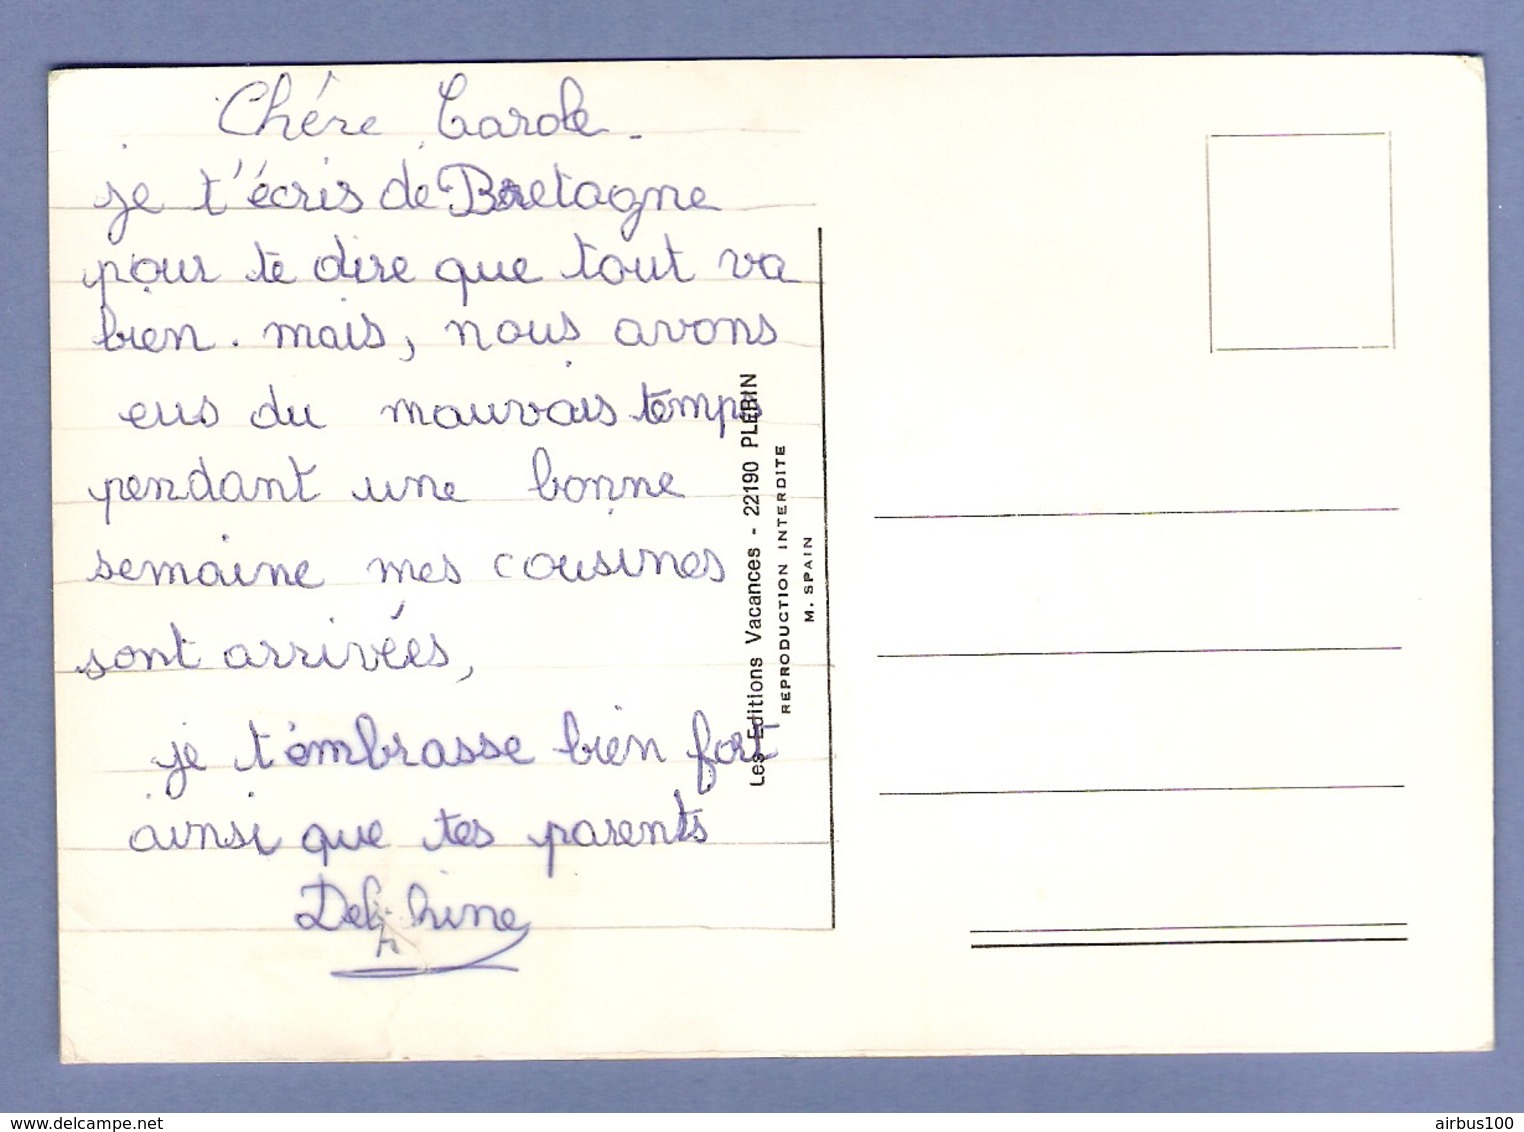 Chére Carole.
je t'écris de Bretagne
pour te dire que tout va
bien. mais, nous avons
eus du mauvais temps
pendant une bonne
semaine mes cousines
sont arrivées,
je t'embrasse bien fort
ainsi que tes parents
Delphine
Les Editions Vacances - 22190 PLERIN
REPRODUCTION INTERDITE
M. SPAIN
http://www.delcampe.net
airbus100